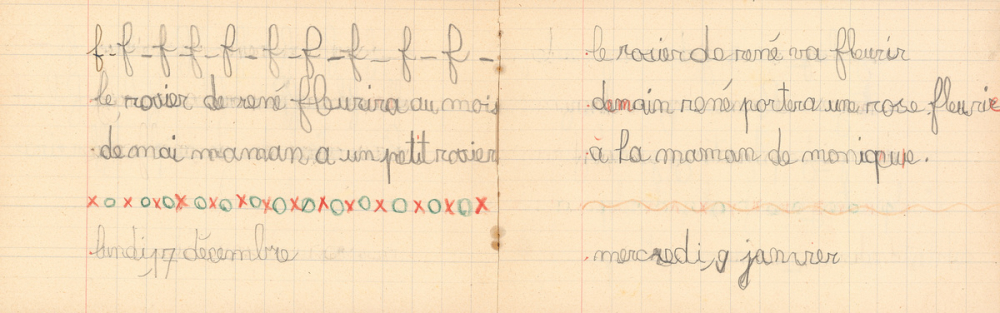 f - f - f f - f - f - f - f - f - f -
le rosier de rené fleurira au mois
de mai maman a un petit rosier
x o x o x o x o x o x o x o x o x o x o x o x o x
lundi, 17 décembre
le rosier de rené va fleurir
demain rené portera une rose fleurie
à la maman de monique.
mercredi, 9 janvier